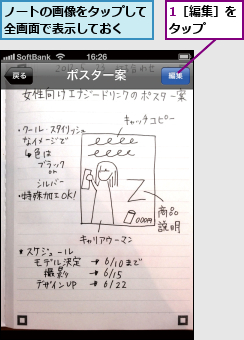 ノートの画像をタップして
全画面で表示しておく
1［編集］を
タップ
SoftBank 16:26
戻る ポスター案 編集
女性向けエナジードリンクのポスター案
キャッチコピー
・クール・スタイリッシュ
なイメージで
色は
ブラック
on
シルバー
・特殊加工OK!
Z
000円
商品
説明
キャリアウーマン
*スケジュール
モデル決定 → 6/10まで
撮影 → 6/15
デザインUP → 6/22